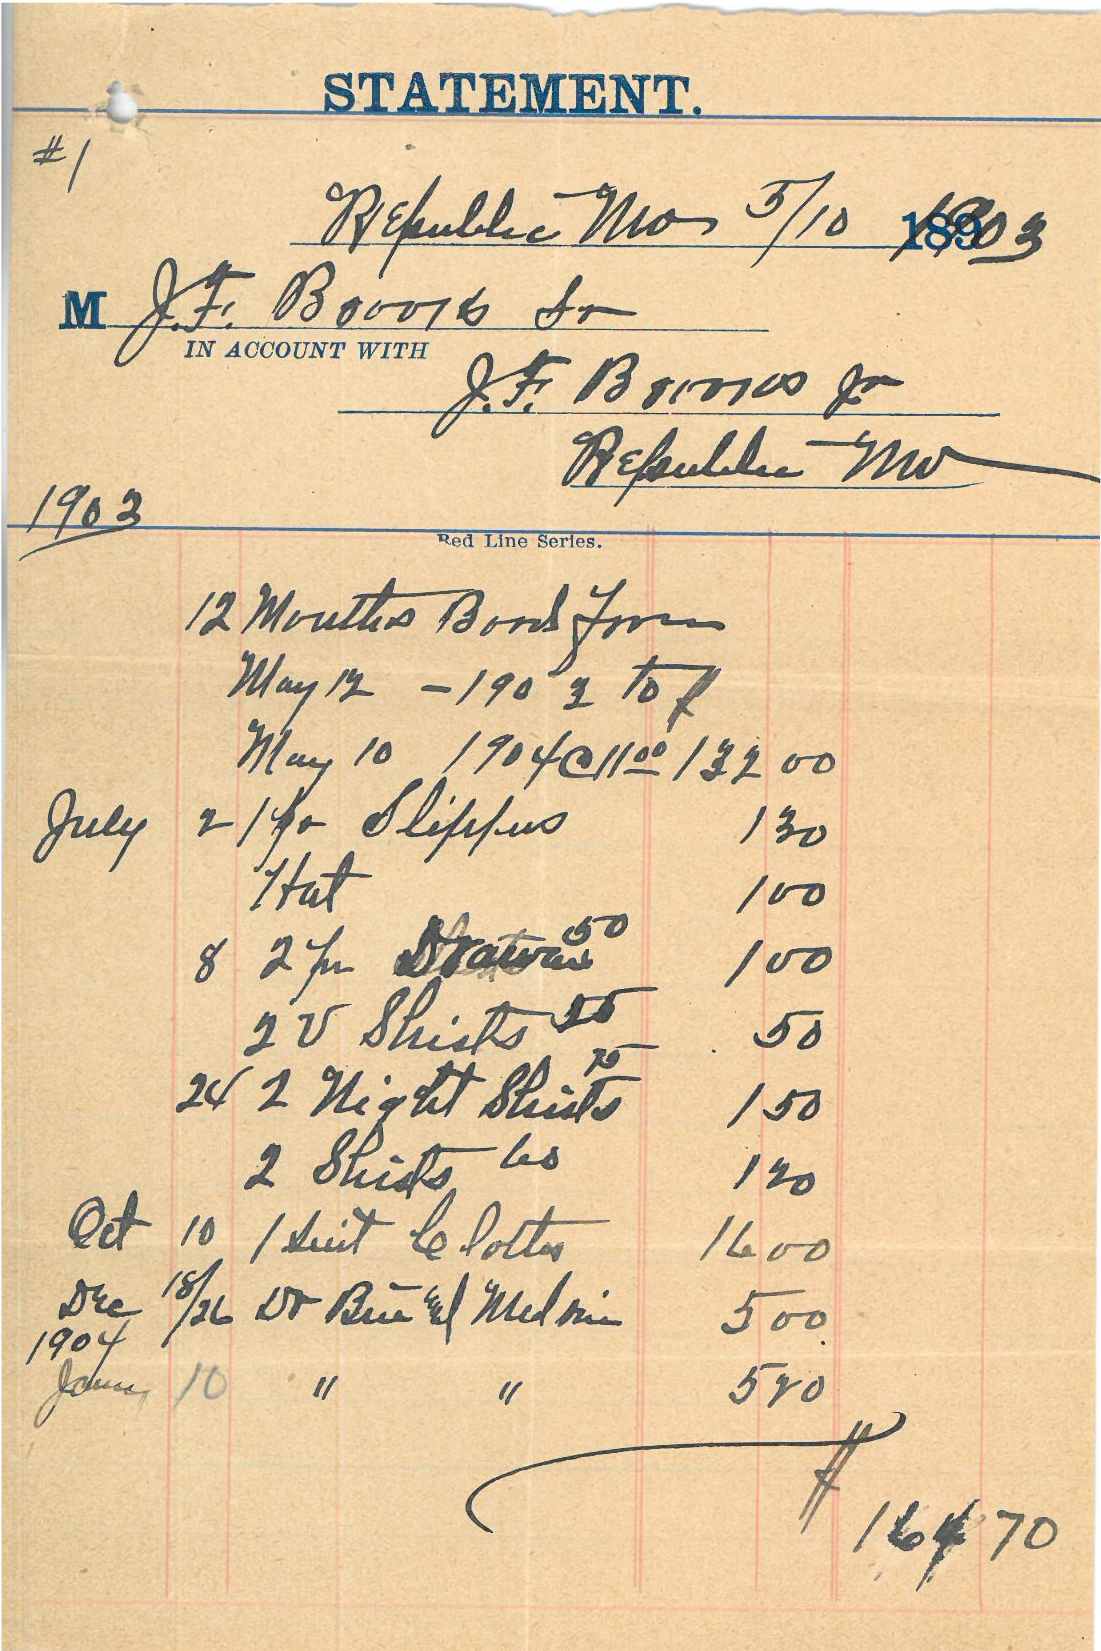 STATEMENT.
#1
Republic Mo 5/10 1903
M J.F. Brooks Sr
IN ACCOUNT WITH
J.F. Brooks Jr
Republic Mo
1903
Red Line Series.
12 Months Board From
May 12 - 1903 to
May 10 1904 @ 11 00 132 00
July 2 1 pr Slippers 1 30
1 Hat 1 00
8 2 pr Drawers 50 1 00
2 U Shirts 25 50
24 2 Night Shirts 75 1 50
2 Shirts 60 1 20
Oct 10 1 Suit Clothes 16 00
Dec 18/26 Dr 5 00
1904
Jany 10 " " 5 20
$ 164 70